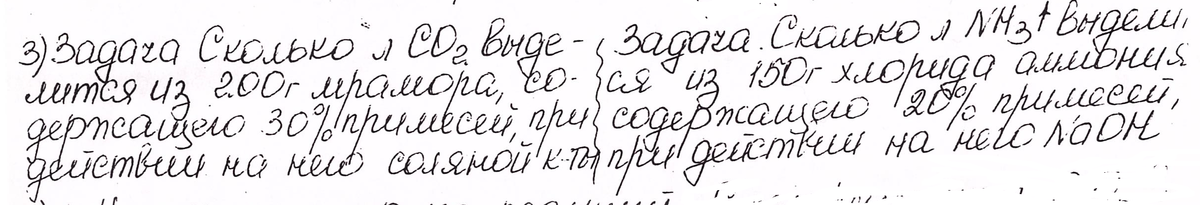 3) Задача Сколько л CO₂ выде-
лится из 200г мрамора, со-
держащего 30% примесей, при
действии на него соляной к-ты
Задача. Сколько л NH₃↑ выдели
ся из 150г хлорида аммония
содержащего 20% примесей,
при действии на него NaOH